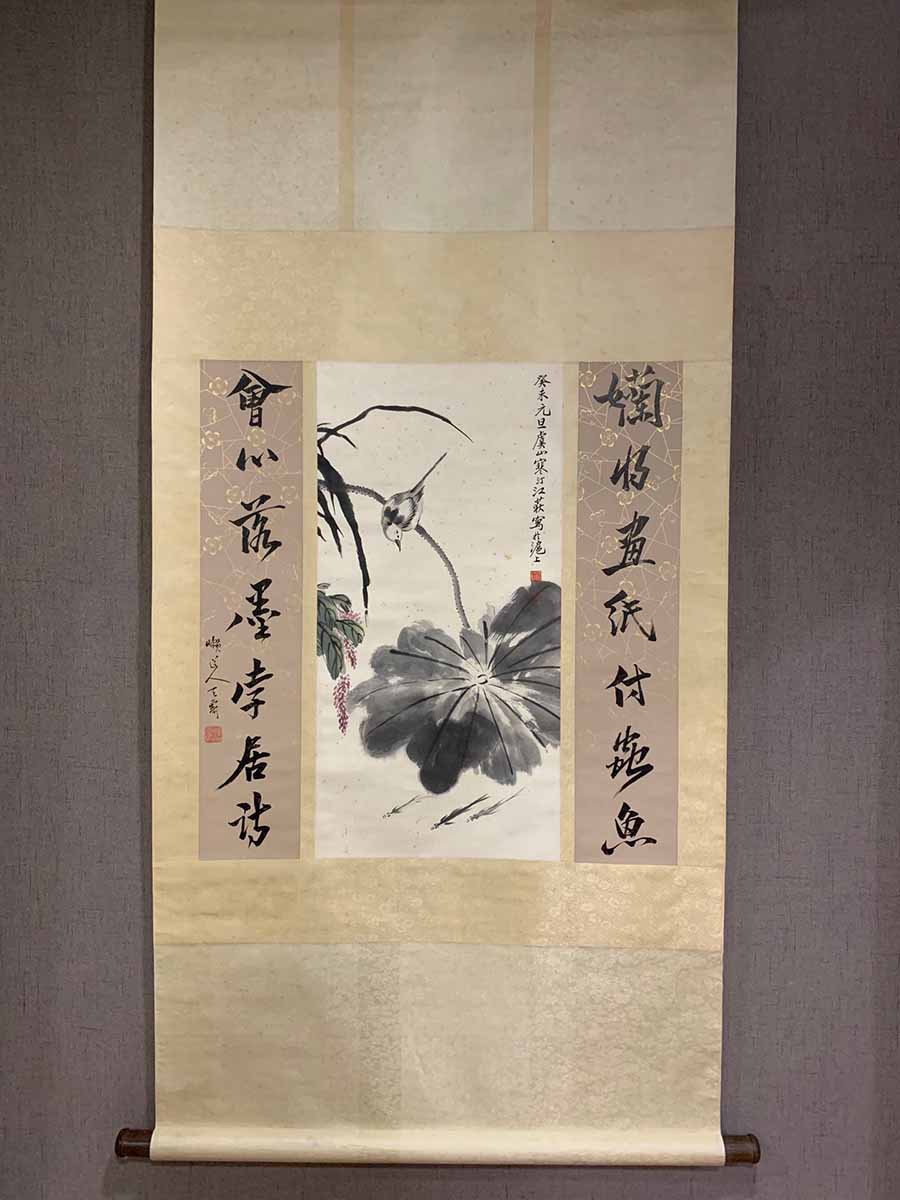 孄將畫紙付蟲魚
癸未元旦虞山寒汀江荻寫於滬上
會心落墨居詩
道人